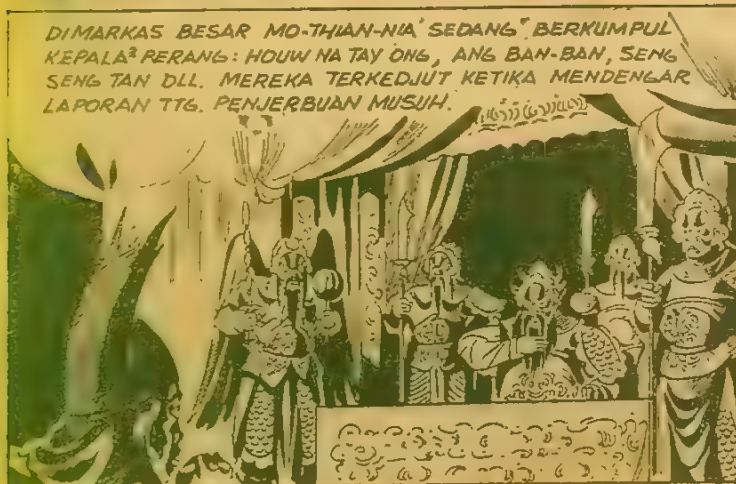 DIMARKAS BESAR MO-THIAN-NIA' SEDANG BERKUMPUL
KEPALA² PERANG: HOUW NA TAY ONG, ANG BAN-BAN, SENG
SENG TAN DLL. MEREKA TERKEDJUT KETIKA MENDENGAR
LAPORAN TTG. PENJERBUAN MUSUH.